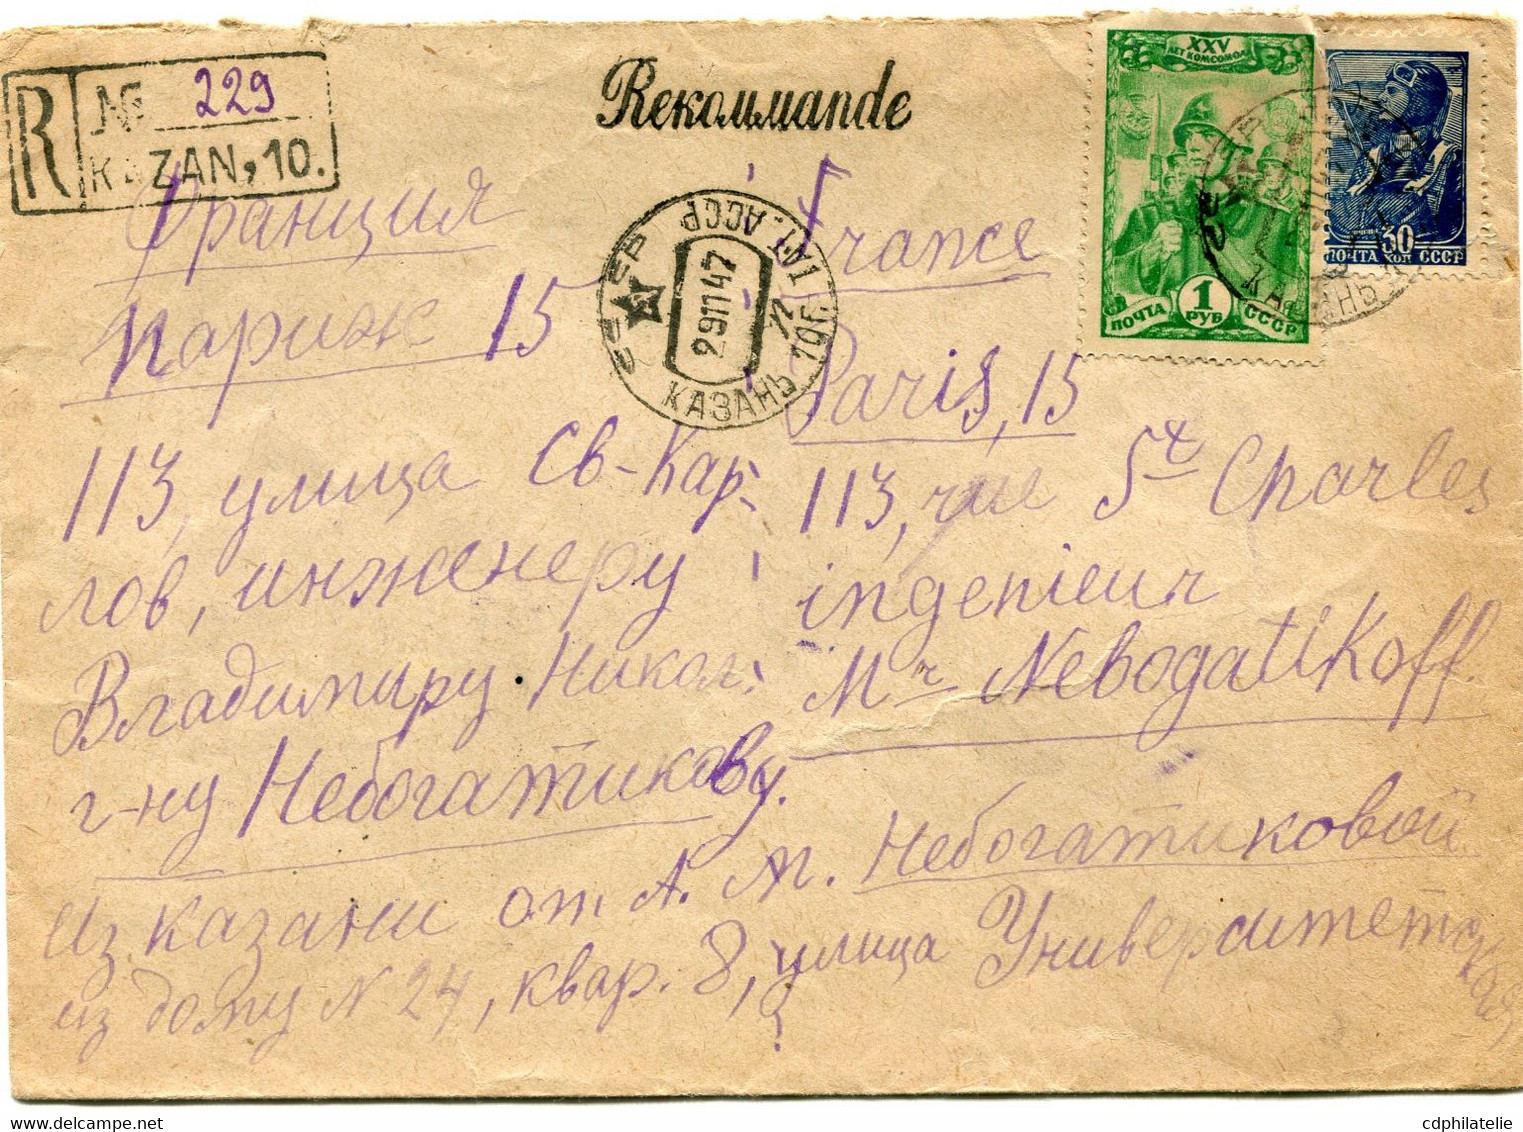 R № 229
KAZAN, 10.
Rекоммапде
XXV
ЛЕТ КОМСОМОЛА
ПОЧТА 1 РУБ СССР
30
ПОЧТА КОП СССР
СССР ТАТ. АССР
29 11 47
КАЗАНЬ 10 Г.
КАЗАНЬ
Франция
Париж 15
113, улица Св-Кар
лов, инженеру
Владимиру Никол.
г-ну Небогатикову.
France
Paris, 15
113, rue St Charles
ingenieur
Mr Nebogatikoff.
из Казани от А. М. Небогатиковой
из дому N 24, квар. 8, улица Университетская
cdphilatelie